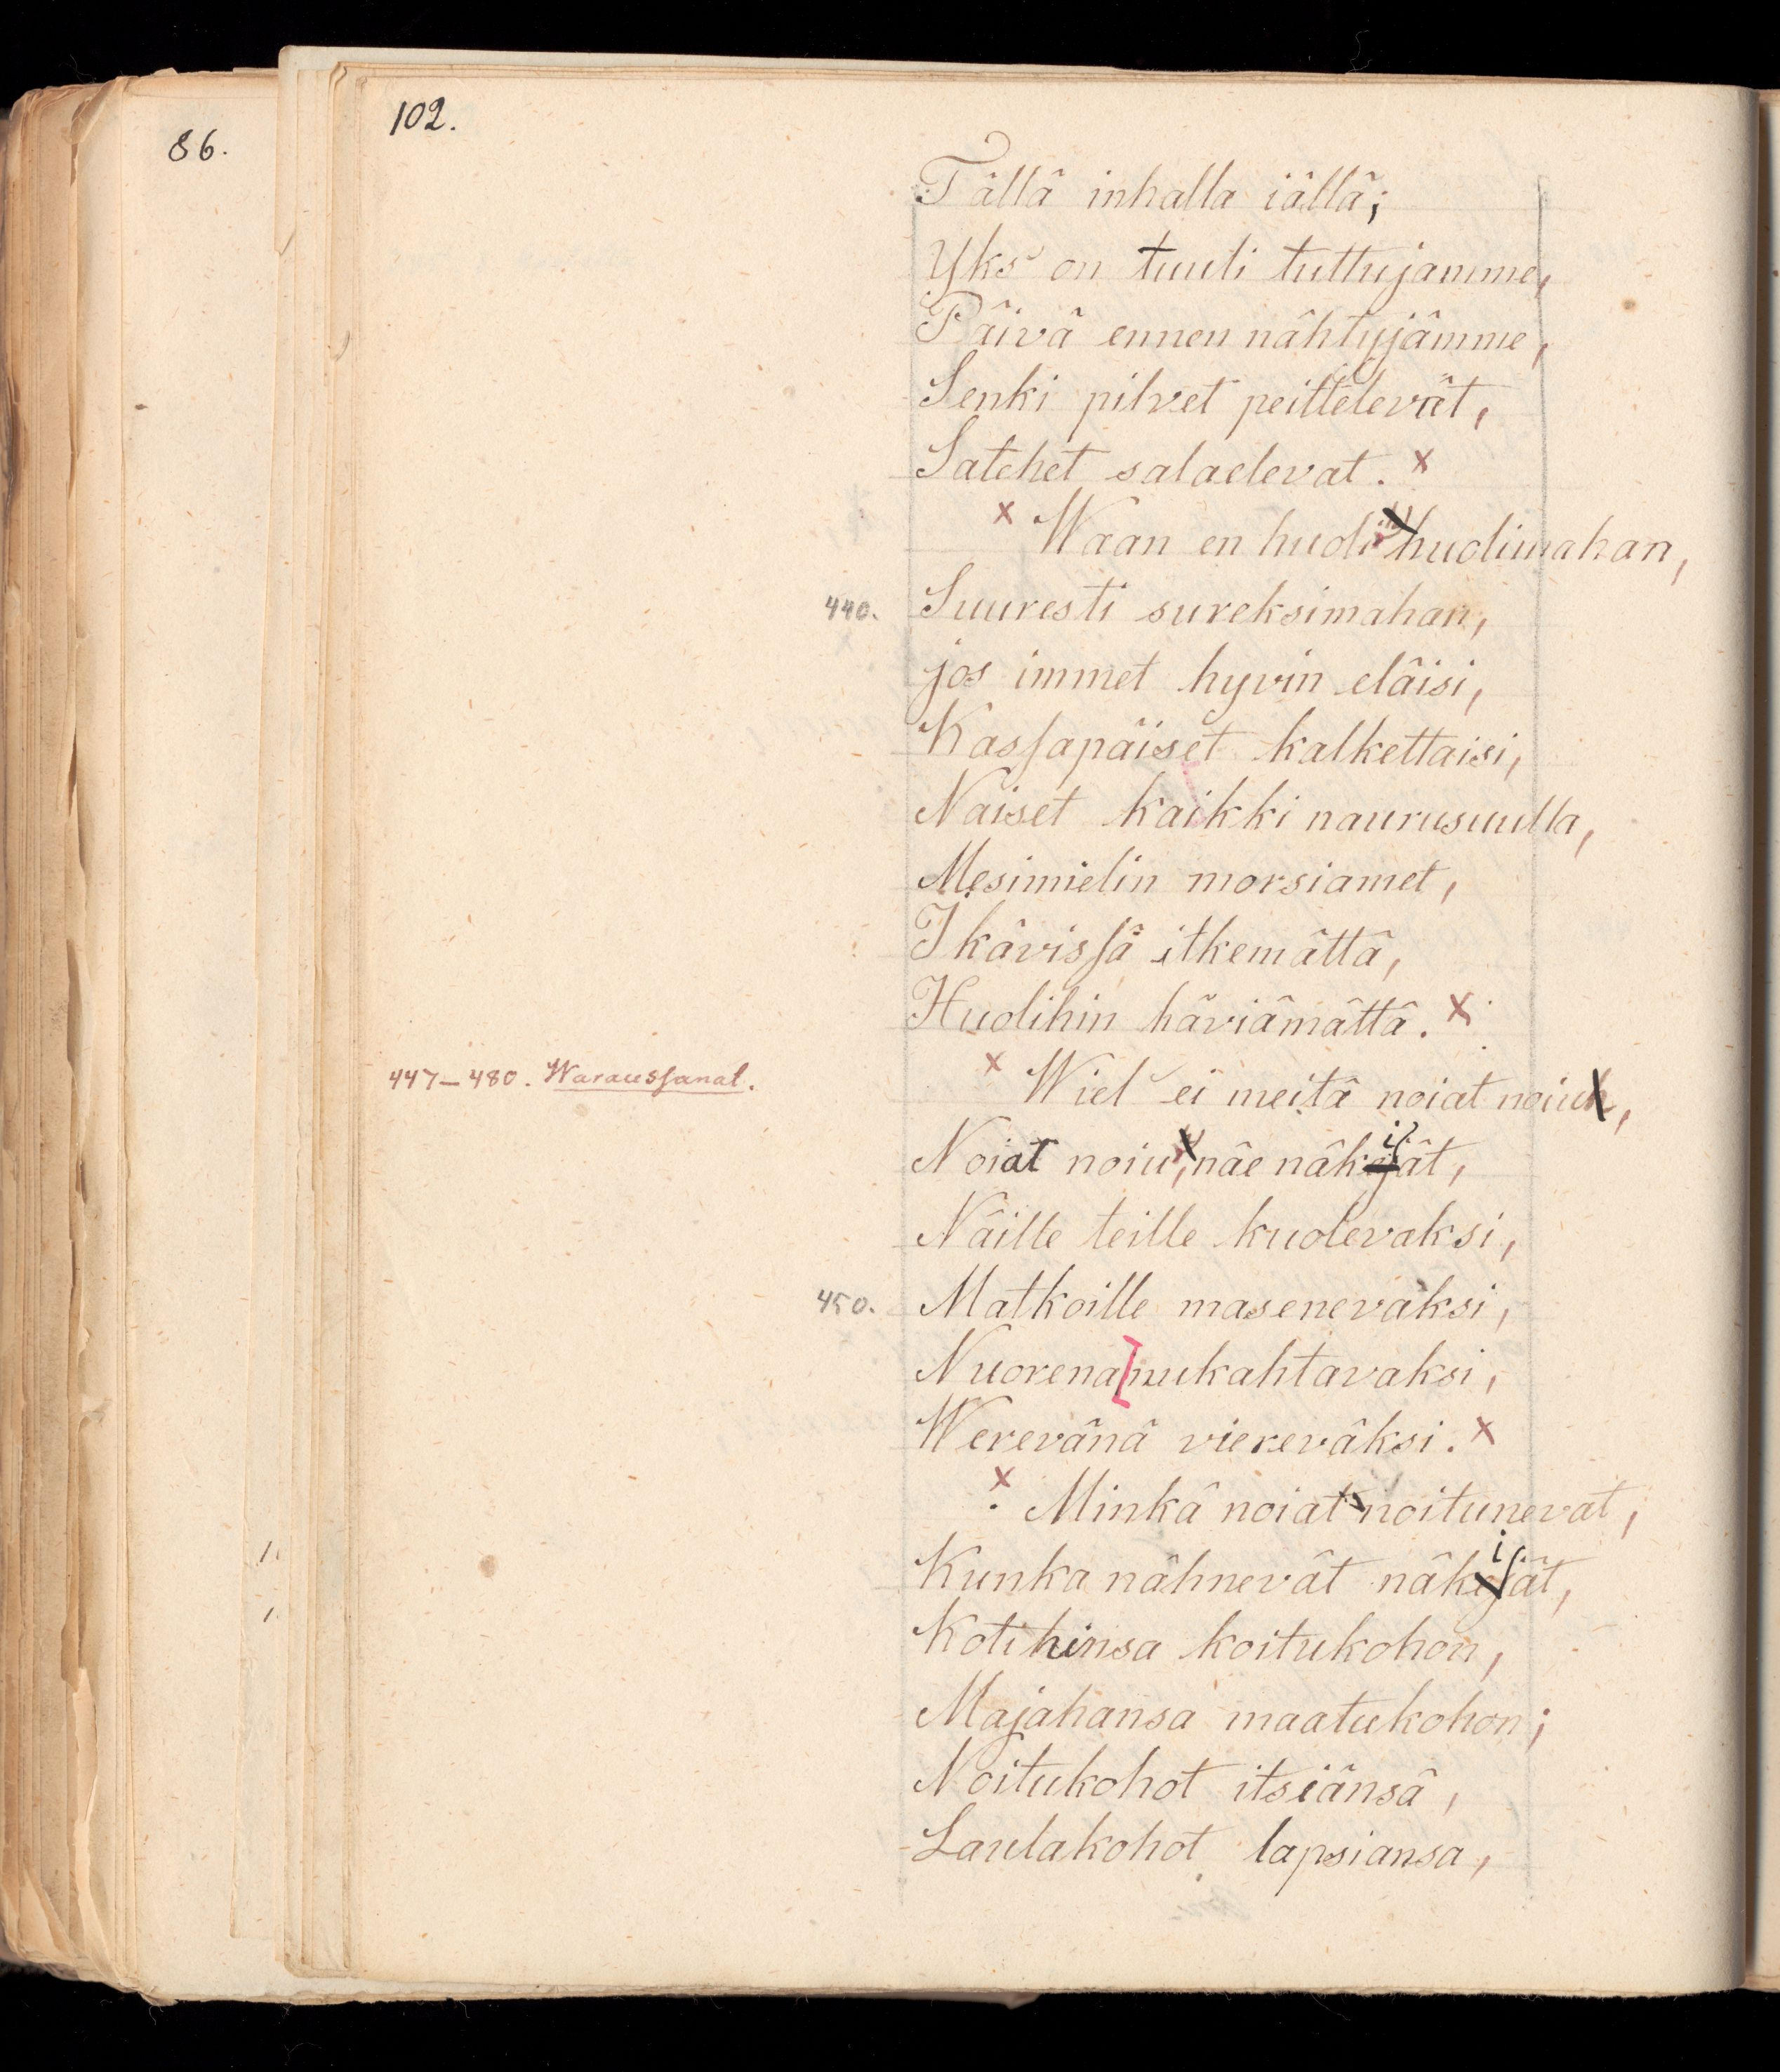 86.
102.
Tällä inhalla iällä;
Yks' on tuuli tuttujamme,
Päivä ennen nähtyjämme,
Senki pilvet peittelevät,
Satehet salaelevat. x
x Waan en huoli huolimahan,
440. Suuresti sureksimahan,
jos immet hyvin eläisi,
Kassapäiset kalkettaisi,
Naiset kaikki naurusuulla,
Mesimielin morsiamet,
Ikävissä itkemättä,
Huolihin häviämättä. x
447–480. Waraussanat.
x Wiel' ei meitä noiat noiu,
Noiat noiu, näe näkiät,
Näille teille kuolevaksi,
450. Matkoille masenevaksi,
Nuorena [nukahtavaksi,
Werevänä viereväksi. x
x Minkä noiat noitunevat,
Kunka nähnevät näkiät,
Kotihinsa koitukohon,
Majahansa maatukohon;
Noitukohot itsiänsä,
Laulakohot lapsiansa,